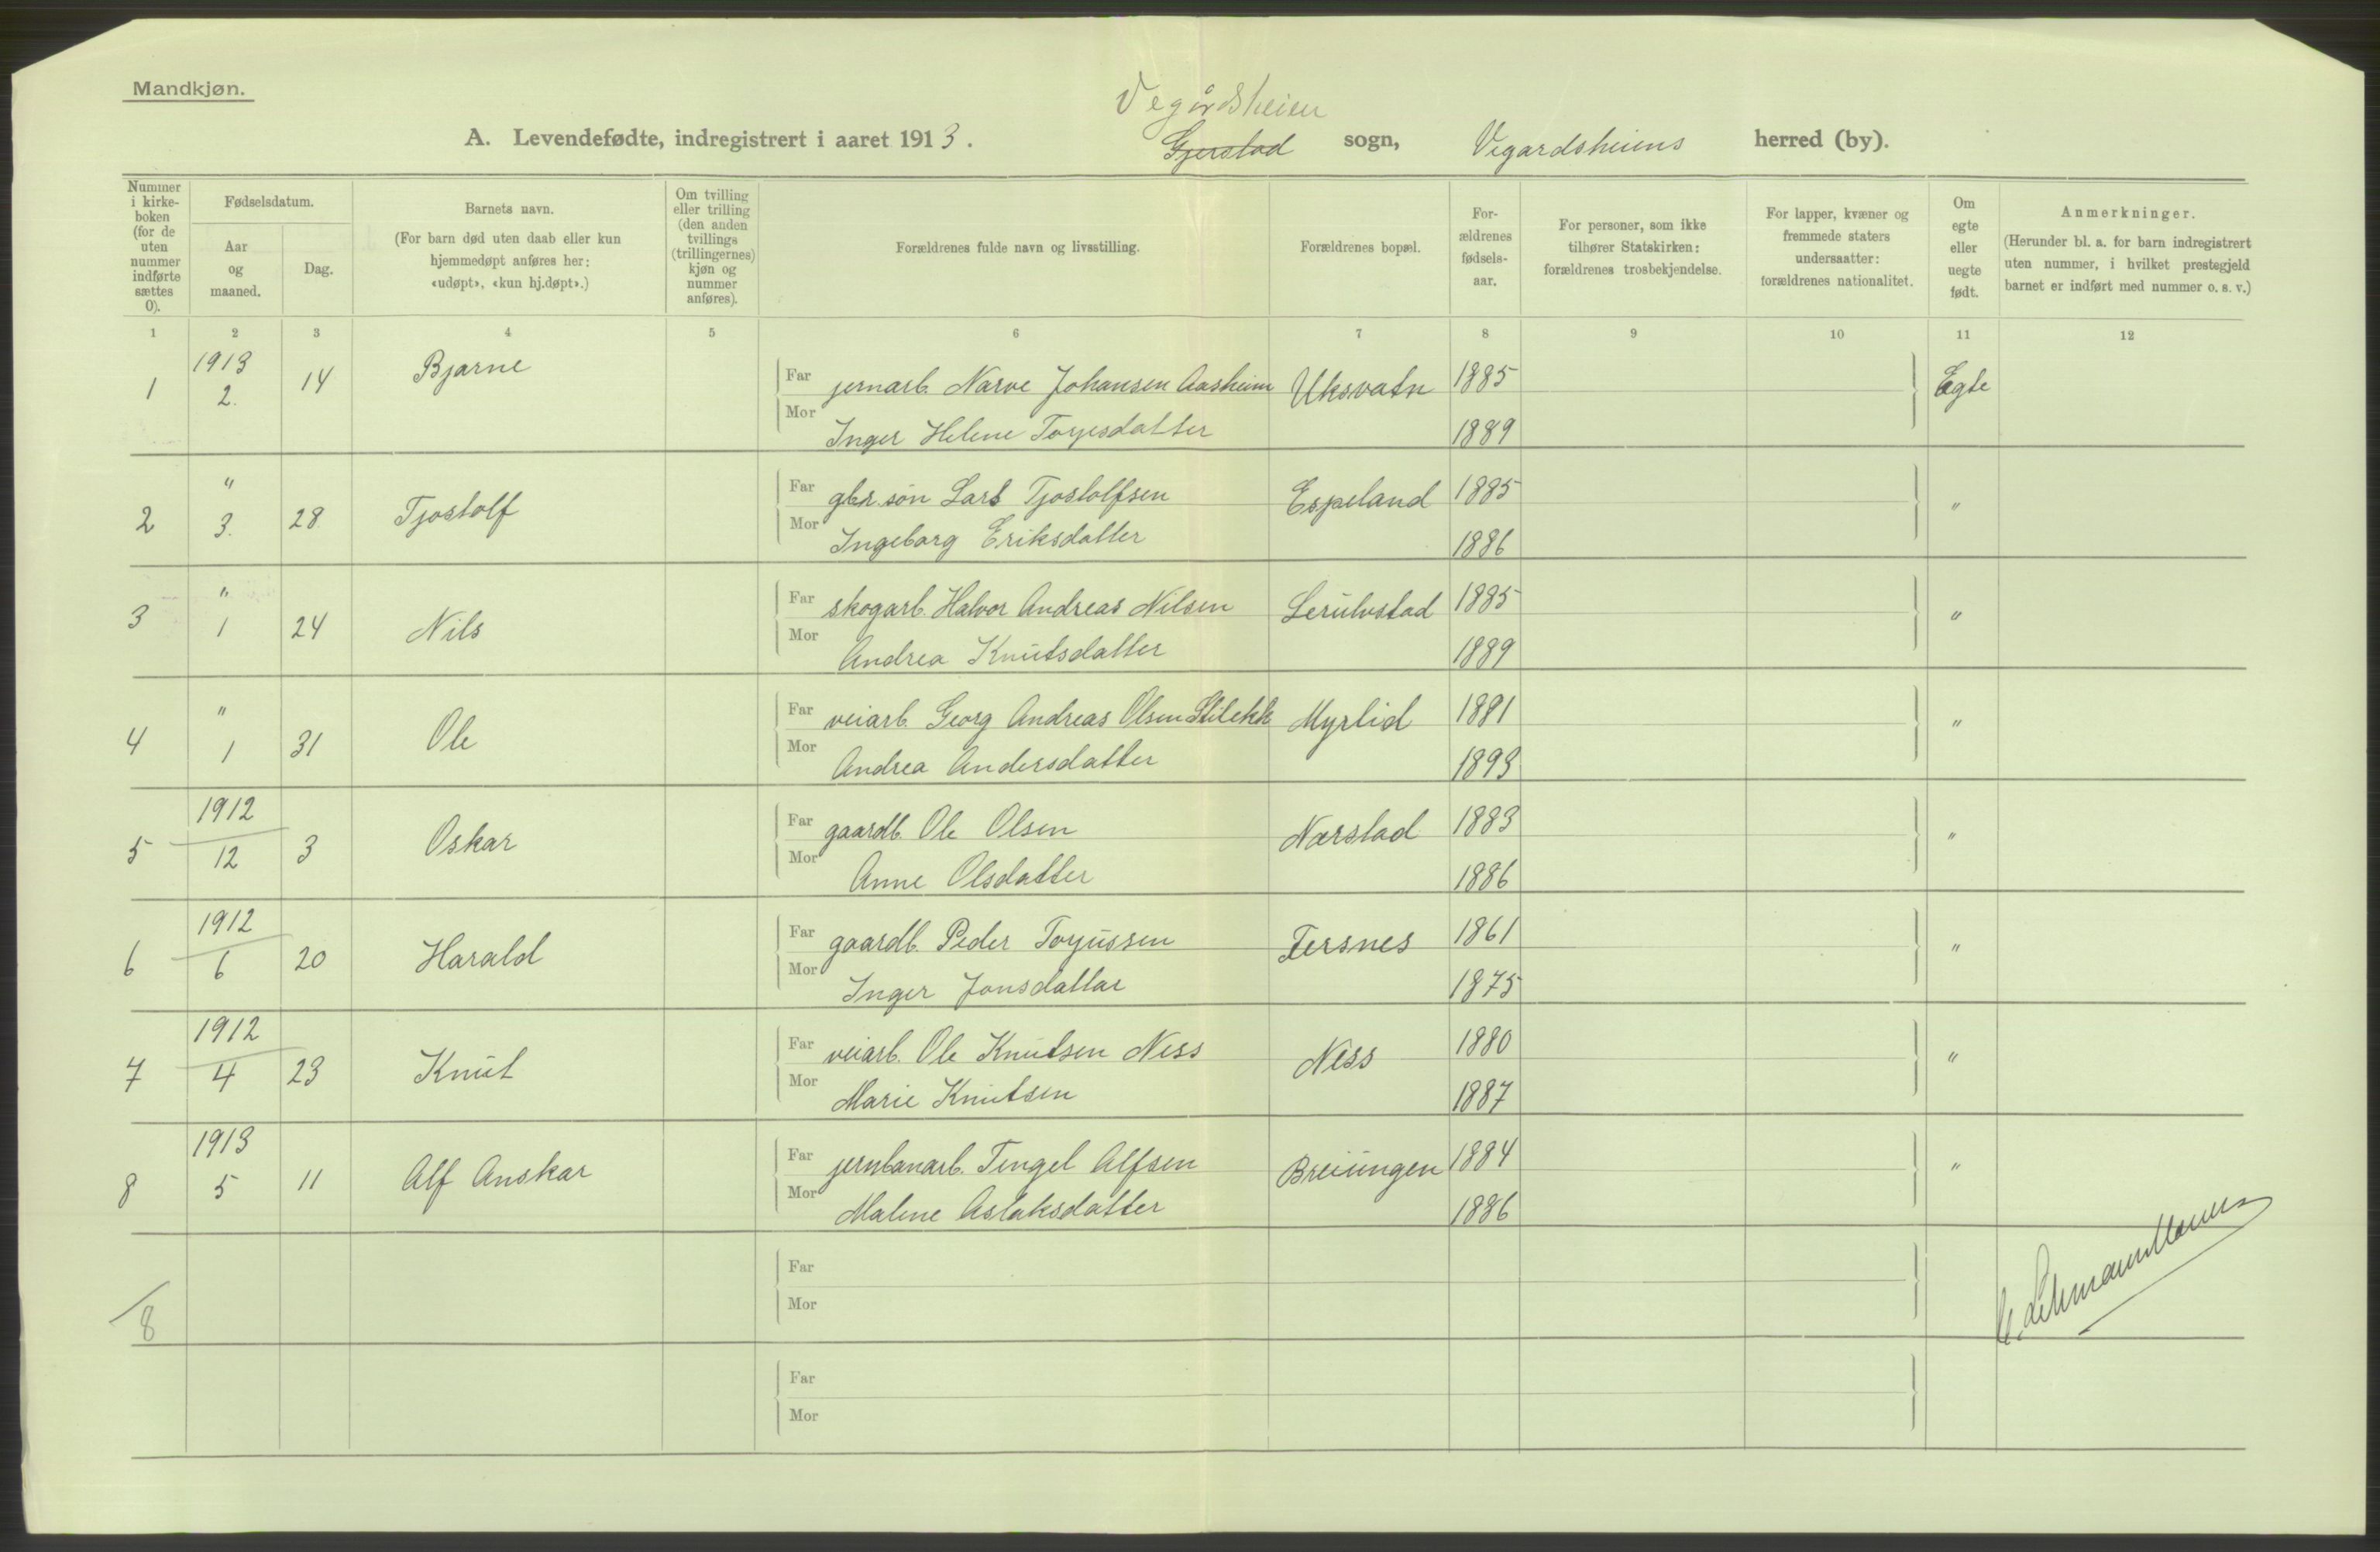 Mandkjøn.
Vegårdsheien
A. Levendefødte, indregistrert i aaret 1913. Gjerstad sogn, Vegardsheiens herred (by).
Nummer i kirkeboken (for de uten nummer indførte sættes 0).
Fødselsdatum.
Aar og maaned.
Dag.
Barnets navn.
(For barn død uten daab eller kun hjemmedøpt anføres her: «udøpt», «kun hj.døpt».)
Om tvilling eller trilling (den anden tvillings (trillingernes) kjøn og nummer anføres).
Forældrenes fulde navn og livsstilling.
Forældrenes bopæl.
For-ældrenes fødsels-aar.
For personer, som ikke tilhører Statskirken: forældrenes trosbekjendelse.
For lapper, kvæner og fremmede staters undersaatter: forældrenes nationalitet.
Om egte eller uegte født.
Anmerkninger.
(Herunder bl. a. for barn indregistrert uten nummer, i hvilket prestegjeld barnet er indført med nummer o. s. v.)
1 2 3 4 5 6 7 8 9 10 11 12
1 1913 2. 14 Bjarne Far jernarb. Narve Johansen Aasheim Uksvatn 1885 Egte
Mor Inger Helene Torjesdatter 1889
2 " 3. 28 Tjostolf Far gbr. søn Lars Tjostolfsen Espeland 1885 "
Mor Ingeborg Eriksdatter 1886
3 " 1 24 Nils Far skogarb. Halvor Andreas Nilsen Lerulvstad 1885 "
Mor Andrea Knutsdatter 1889
4 " 1 31 Ole Far veiarb. Georg Andreas Olsen Myrlid 1891 "
Mor Andrea Andersdatter 1893
5 1912 12 3 Oskar Far gaardb. Ole Olsen Nærstad 1883 "
Mor Anne Olsdatter 1886
6 1912 6 20 Harald Far gaardb. Peder Torjussen Fersnes 1861 "
Mor Inger Jonsdatter 1875
7 1912 4 23 Knut Far veiarb. Ole Knutsen Ness Ness 1880 "
Mor Marie Knutsen 1887
8 1913 5 11 Alf Anskar Far jernbanarb. Tengel Alfsen Breiungen 1884 "
Mor Malene Aslaksdatter 1886
Far
Mor
8
Far
Mor